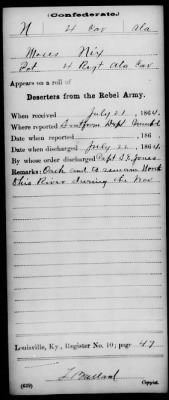 (Confederate.)
N 4 Cav Ala
Moses Nix
Pvt 4 Regt Ala Cav
Appears on a roll of
Deserters from the Rebel Army.
When received July 21, 1864.
Where reported Dept.
Date when reported , 186 .
Date when discharged July 22, 1864.
By whose order discharged Capt S. E. Jones
Remarks: Oath and to remain North
Ohio River during the War
Louisville, Ky., Register No. 10; page 47
(639) Copyist.